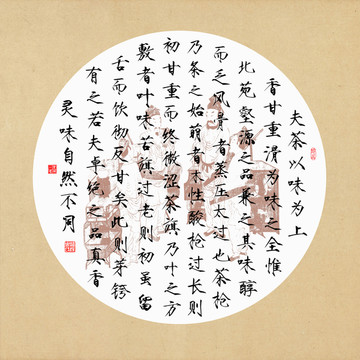 夫茶以味为上
香甘重滑为味之全惟
北苑壑源之品兼之其味醇
而乏风骨者蒸压太过也茶枪
乃条之始萌者木性酸枪过长则
初甘重而终微涩茶旗乃叶之方
敷者叶味苦旗过老则初虽留
舌而饮彻反甘矣此则芽锷
有之若夫卓绝之品真香
灵味自然不同